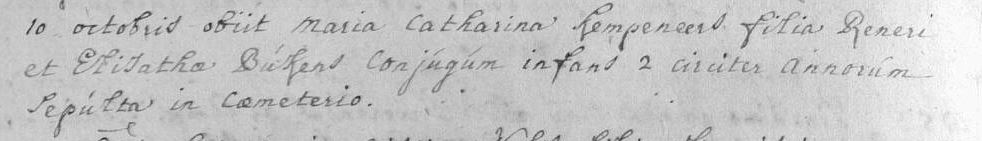 10 octobris obiit Maria Catharina Kempeneers filia Reneri
et Elisathæ Búkens Conjúgúm infans 2 circiter Annorúm
Sepúlta in Cæmeterio.